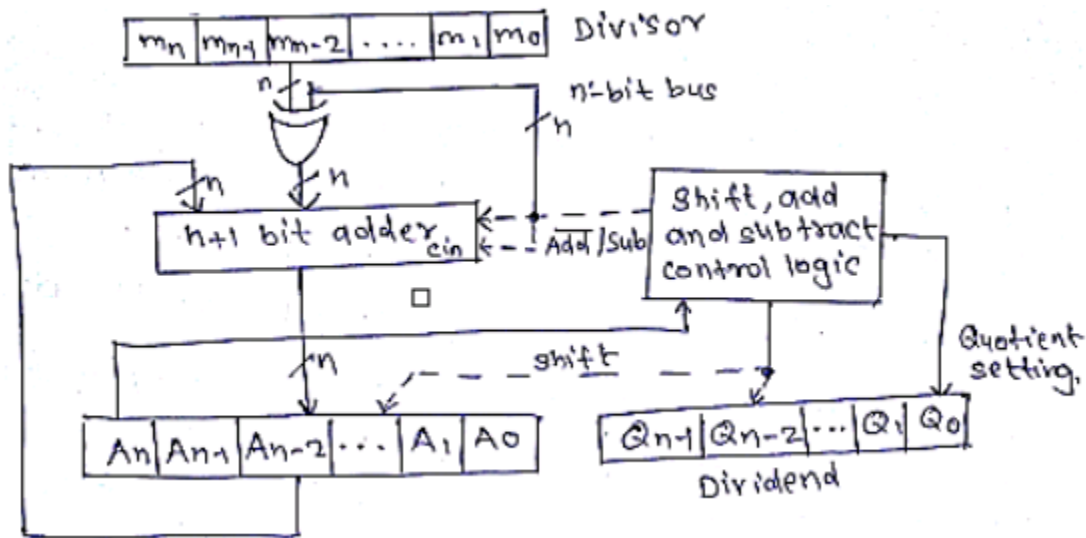 mn mn-1 mm-2 .... m1 m0 Divisor
n
n-bit bus
n
n
n
n+1 bit adder
cin
Add/Sub
Shift, add
and subtract
control logic
n
shift
Quotient
setting,
An An-1 An-2 ... A1 A0
Qn-1 Qn-2 ... Q1 Q0
Dividend